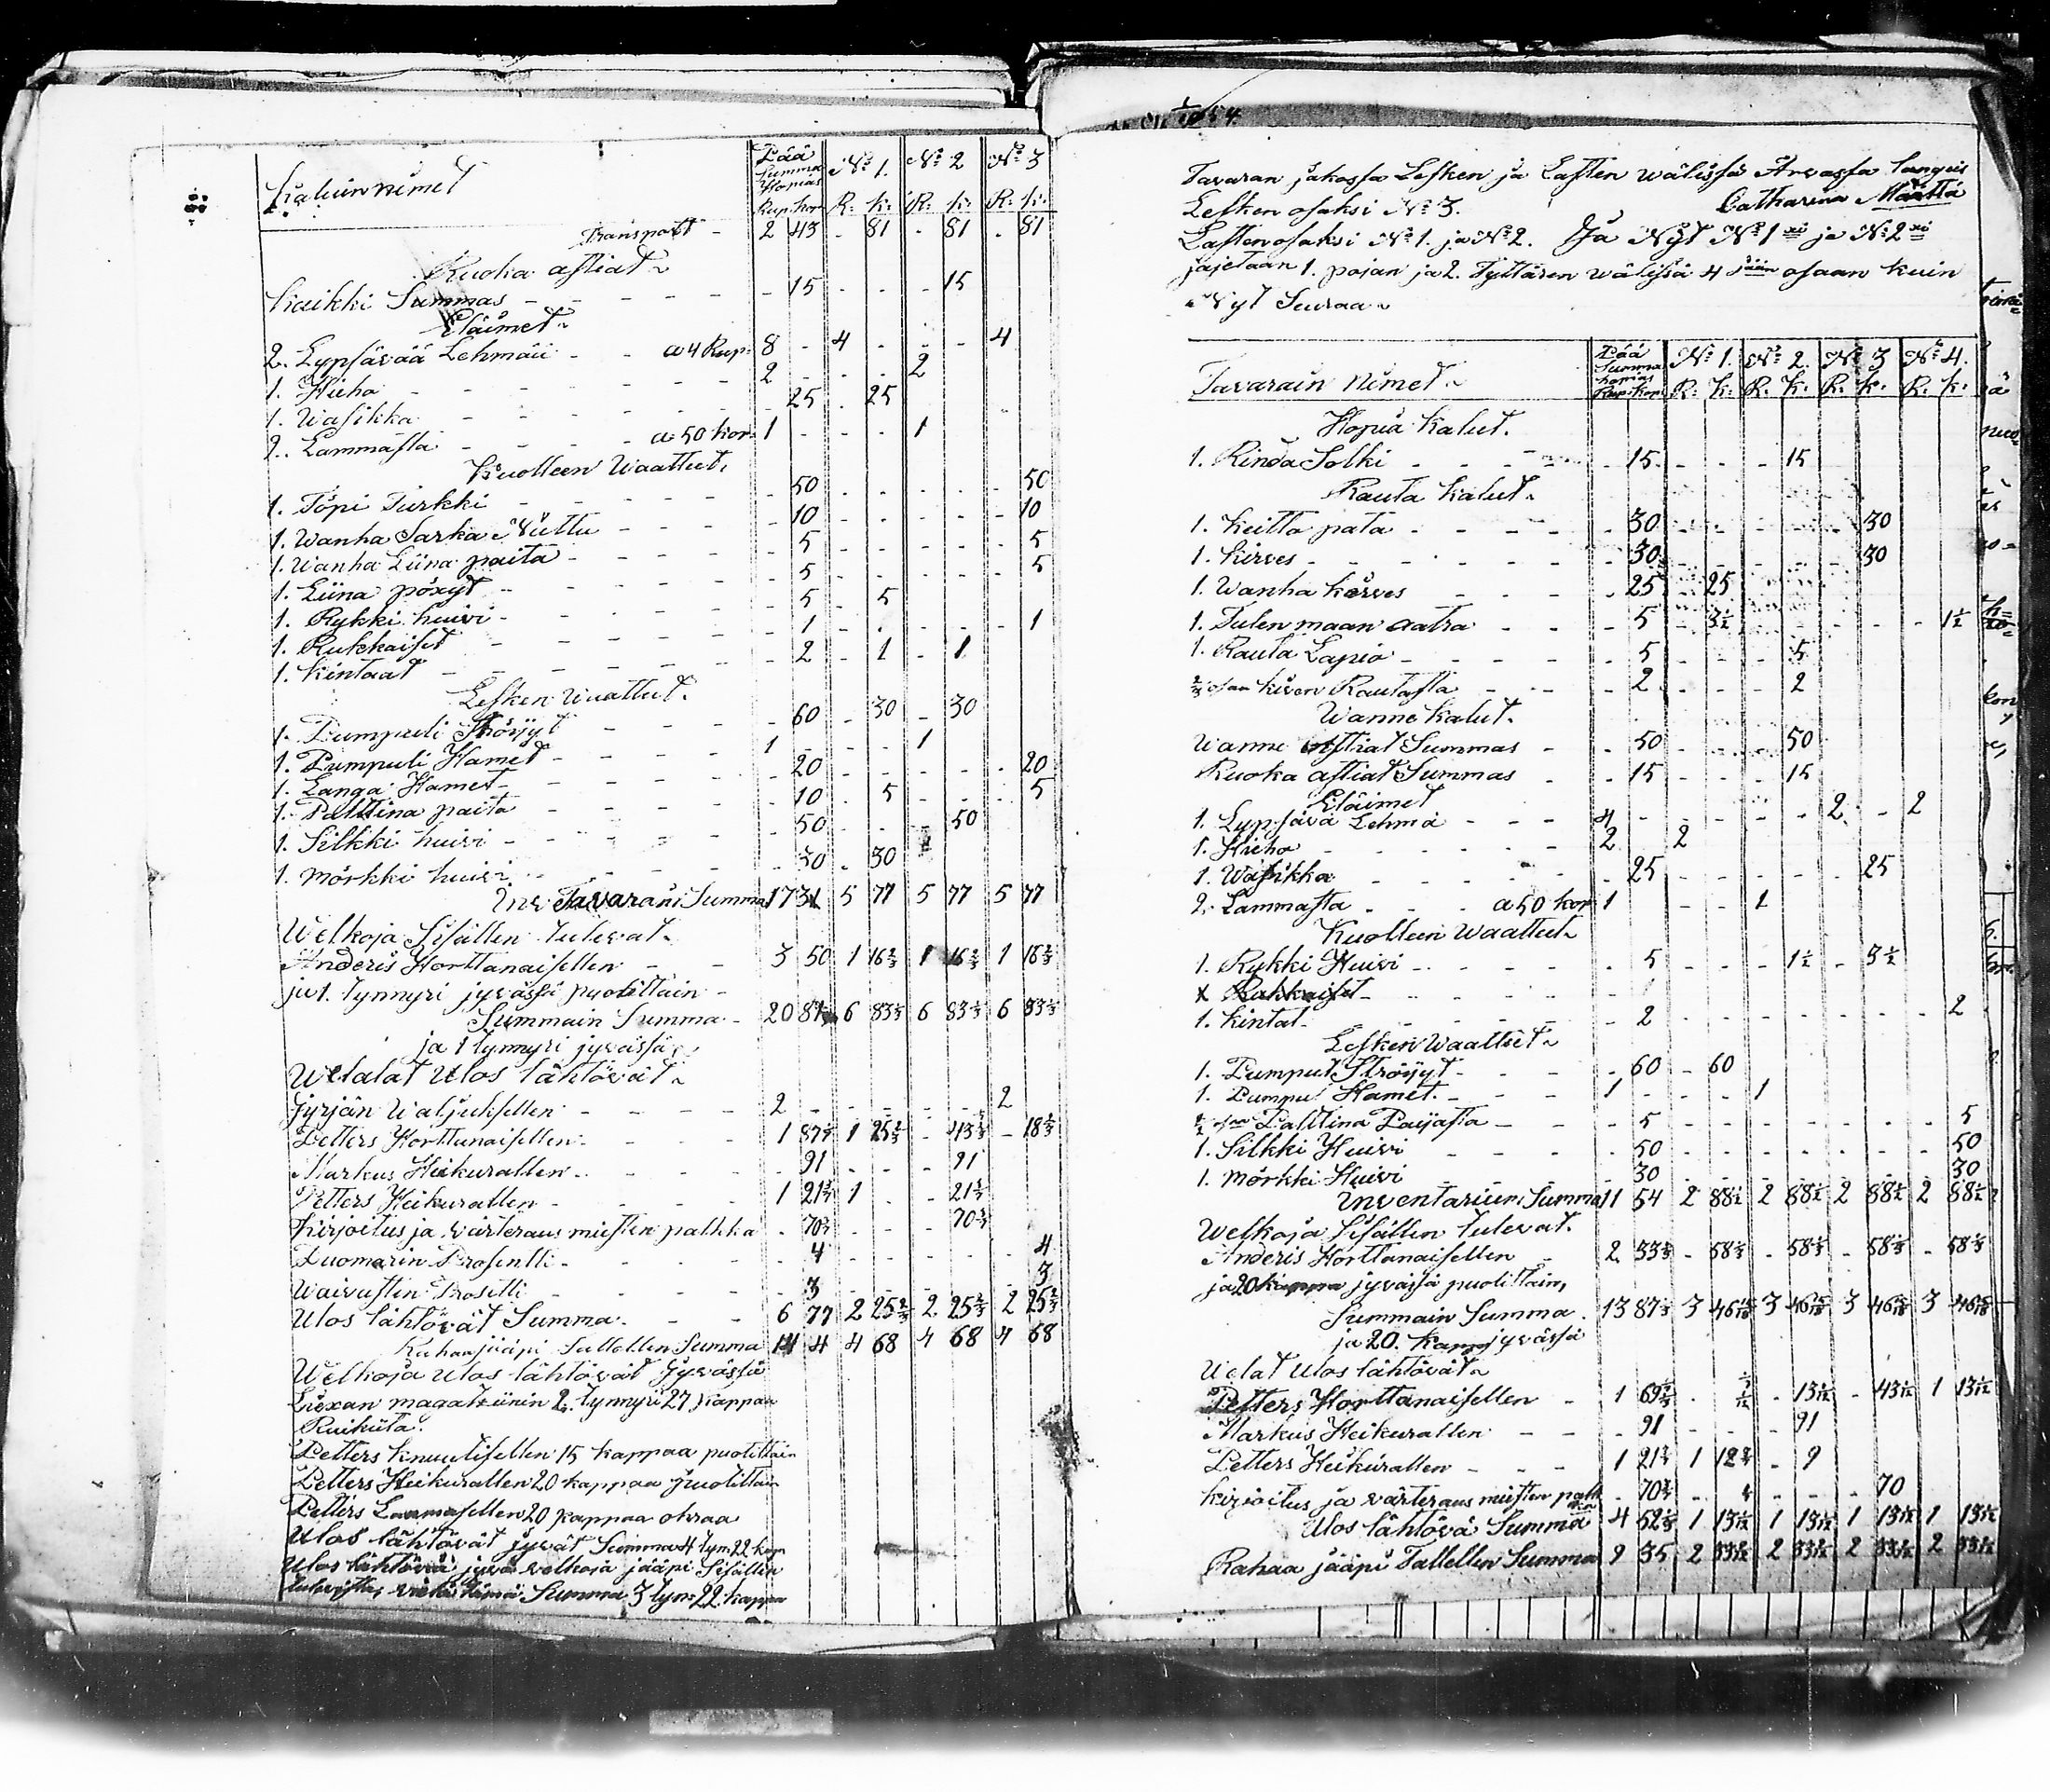 Kaluin nimet Pää Summa Hopias Rup. kop. No 1. R: k: No 2 R: k: No 3 R: k:
Transport - 2 43 - 81 - 81 - 81
Ruoka astiat
Kaikki Summas - 15 - - - 15
Eläimet
2. Lypsävää Lehmää - - a 4 Rup. 8 - 4 - - - 4
1. Hieho 2 - - - 2
1. Wasikka - 25 - 25
2. Lammasta - - a 50 kop. 1 - - - 1
Kuolleen Waattet.
1. Töpi Turkki - 50 - - - - - 50
1. Wanha Sarka Nuttu - 10 - - - - - 10
1. Wanha Liina paita - 5 - - - - - 5
1. Liina pöxyt - 5 - - - - - 5
1. Rykki huivi - 5 - 5
1. Rukkaiset - 1 - - - - - 1
1. Kintaat - 2 - 1 - 1
Lesken Waattet.
1. Pumpuli Tröijyt - 60 - 30 - 30
1. Pumpuli Hamet 1 - - - 1
1. Langa Hamet - 20 - - - - - 20
1. Palttina paita - 10 - 5 - - - 5
1. Silkki huivi - 50 - - - 50
1. Mörkki huivi - 30 - 30
Inv Tavarain Summa 17 31 5 77 5 77 5 77
Welkoja Sisällen tulevat.
Anderis Horttanaisellen 3 50 1 16 2/3 1 16 2/3 1 16 2/3
ja 1. tynnyri jyvässä puolittain
Summain Summa 20 81 6 83 2/3 6 83 2/3 6 83 2/3
ja 1 tynnyri jyvässä
Welalat Ulos lähtövät
Jyrjän Waljuksellen 2 - - - - - 2
Petters Horttanaisellen 1 87 1 25 2/3 - 43 - 18 2/3
Markus Heikurallen - 91 - - - 91
Petters Heikurallen 1 21 1 - - 21
Kirjoitus ja värteraus miesten palkka - 70 - - - 70
Duomarin Prosentti - 4 - - - - - 4
Waivasten Prosetti - 3 - - - - - 3
Ulos lähtövät Summa 6 77 2 25 2/3 2 25 2/3 2 25 2/3
Rahaa jääpi Tallellen Summa 14 4 4 68 4 68 4 68
Welkoja ulos lähtövät Jyvässä
Liexan magatsiinin 2. tynnyri 27 kappaa
Ruikiita.
Petters Knuutisellen 15 kappaa puolittain
Petters Heikurallen 20 kappaa puolittain
Petters 20 kappaa ohraa
Ulos lähtövät jyvät Summa 4 tyn. 22 kap
Ulos lähtövä jyvä velkoja jääpi Sisällen
Summa 3 tyn: 22 kappa
Tavaran jakossa Lesken ja Lasten wälissä Arvassa langeis
Lesken osaksi No 3. Catharina Määttä
Lasten osaksi No 1. ja No 2. Ja Nyt No 1 ja No 2
jajetaan 1. pojan ja 2. Tyttären wälissä 4 osaan kuin
Nyt Seuraa
Tavarain Nimet. Pää Summa hopias Rup. kop. No 1. R: k: No 2. R. k: No 3 R. k: No 4. R. k:
Hopia Kalut.
1. Rinda Solki - 15 - - - 15
Rauta Kalut.
1. Keitto pata - 30 - - - - - 30
1. Kirves - 30 - - - - - 30
1. Wanha kärves - 25 - 25
1. Tulen maan aatra - 5 - 3 1/2 - - - - - 1 1/2
1. Rauta Lapio - 5 - - - 5
2/3 osaa kiven Rautasta - 2 - - - 2
Wanne Kalut.
Wanne astiat Summas - 50 - - - 50
Ruoka astiat Summas - 15 - - - 15
Eläimet
1. Lypsävä Lehmä 4 - - - - - 2 - 2
1. Hieho 2 2
1. Wasikka - 25 - - - - - 25
2. Lammasta - - a 50 kop 1 - - 1
Kuolleen Waattet
1. Rykki Huivi - 5 - - - 1 1/2 - 3 1/2
1. Rukkaiset
1. Kintat - 2 - - - - - - - 2
Lesken Waattet
1. Pumpul Tröijyt - 60 - 60
1. Pumpu Hamet 1 - - - 1
1/2 osaa Palttina Paijasta - 5 - - - - - - - 5
1. Silkki Huivi - 50 - - - - - - - 50
1. Mörkki Huivi - 30 - - - - - - - 30
Inventarium Summa 11 54 2 88 1/2 2 88 1/2 2 88 1/2 2 88 1/2
Welkoja Sisällen tulevat.
Anderis Horttanaisellen 2 33 1/3 - 58 1/3 - 58 1/3 - 58 1/3 - 58 1/3
ja 20 kappa jyvässä puolittain,
Summain Summa 13 87 1/3 3 46 3 46 3 46 3 46
ja 20. Kapp jyvässä
Welat Ulos lähtövät
Petters Horttanaisellen 1 69 - 13 1/12 - 43 1/12 1 13 1/12
Markus Heikurallen - 91 - - - 91
Petters Heikurallen 1 21 1 12 - 9
Kirjoitus ja värteraus miesten palk - 70 - - - 70
Ulos lähtövä Summa 4 52 1 13 1/12 1 13 1/12 1 13 1/12 1 13 1/12
Rahaa jääpi Tallellen Summa 9 35 2 33 2 33 2 33 2 33